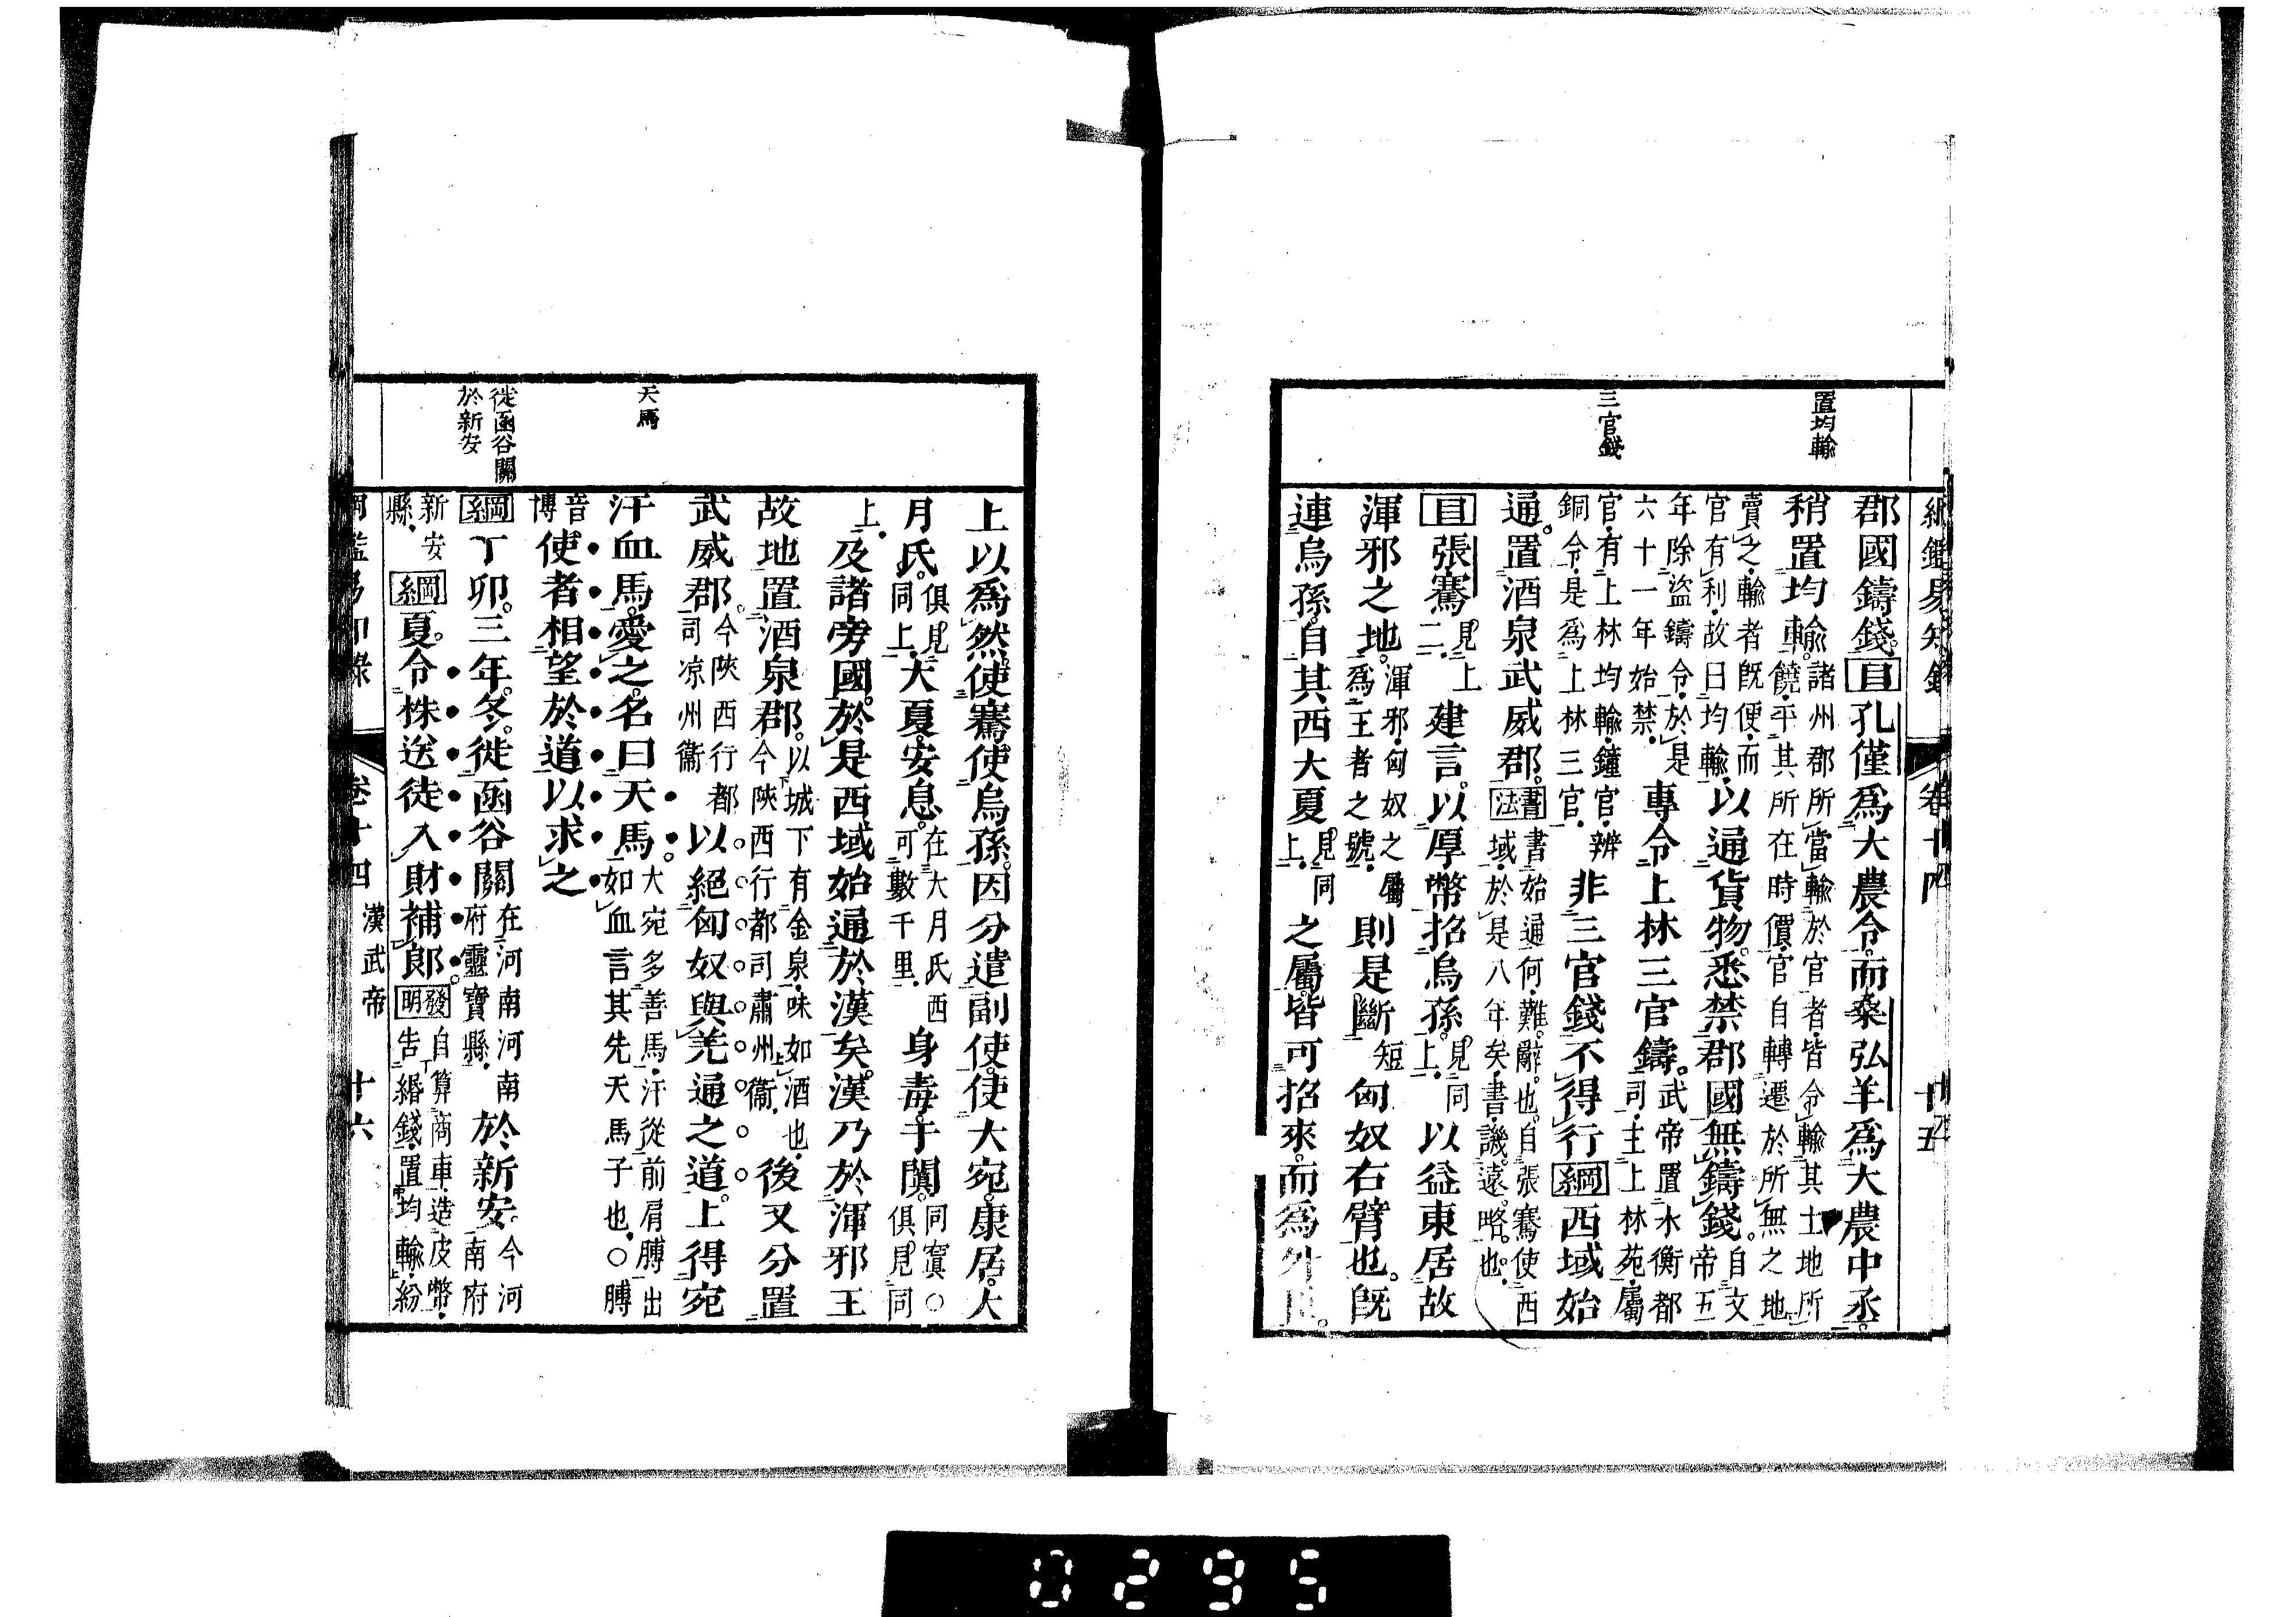 綱鑑易知錄　卷十四　十五
置均輸
三官錢
郡國鑄錢。目孔僅爲大農令。而桑弘羊爲大農中丞。
稍置均輸。諸州郡所當輸於官者、皆令輸其土地所饒、平其所在時價、官自轉遷於所無之地
賣之、輸者既便、而官有利、故曰均輸、以通貨物。悉禁郡國無鑄錢。自文帝五
年除盜鑄令、於是六十一年始禁、專令上林三官鑄。武帝置水衡都司、主上林苑、屬
官、有上林均輸、鐘官、辨銅令、是爲上林三官、非三官錢不得行綱西域始
通。置酒泉武威郡。書法書始通何、難辭也。自張騫使西域、於是八年矣、書、譏遠略也、
目張騫見上二、建言。以厚幣招烏孫。見同上、以益東居故
渾邪之地。渾邪、匈奴之屬爲王者之號、則是斷短匈奴右臂也。既
連烏孫。自其西大夏見同上、之屬。皆可招來。而爲外臣。
天馬
徙函谷關
於新安
上以爲然。使騫使烏孫。因分遣副使。使大宛。康居。大
月氏。俱見同上、大夏。安息。在大月氏西可數千里、身毒。于闐。同窴○俱見同
上、及諸旁國。於是西域始通於漢矣。漢乃於渾邪王
故地置酒泉郡。以城下有金泉、味如酒也、今陝西行都司肅州衞、後又分置
武威郡。今陝西行都司凉州衞以絕匈奴與羌通之道。上得宛
汗血馬。愛之。名曰天馬。大宛多善馬、汗從前肩膊出如血言其先天馬子也、○膊
音博使者相望於道以求之
綱丁卯。三年。冬。徙函谷關在河南河南府靈寶縣、於新安。今河南府
新安縣、綱夏。令株送徒入財補郎。發明自算商車、造皮幣、告緡錢、置均輸、紛
綱鑑易知錄　卷十四　漢武帝　十六
0295